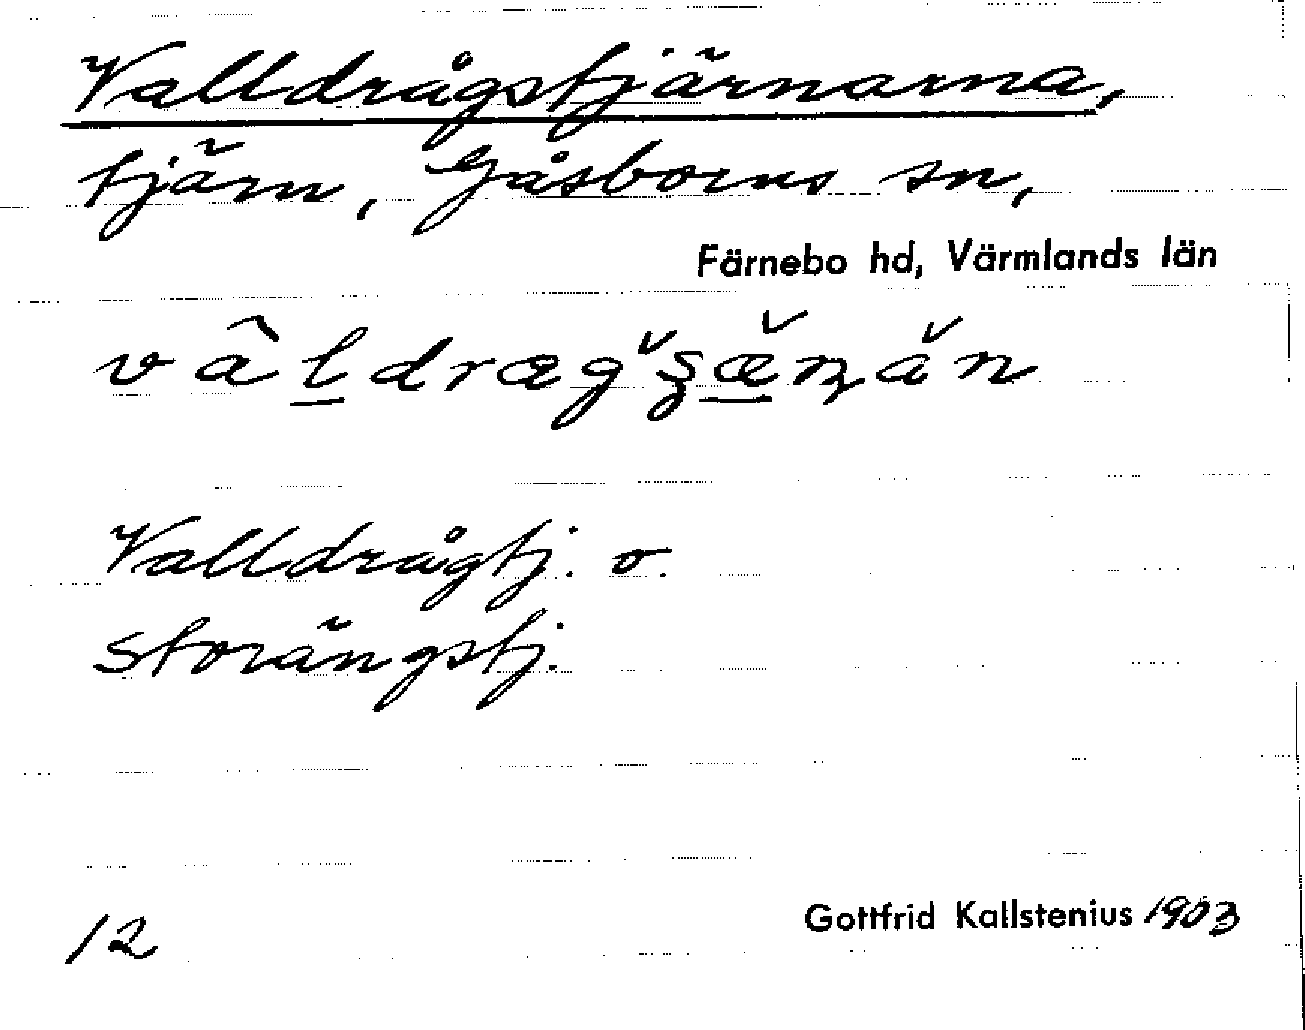 Valldrågstjärnarna,
tjärn, Gåsborns sn,
Färnebo hd, Värmlands län
Valldrågtj. o.
Storängstj.
12
Gottfrid Kallstenius 1903